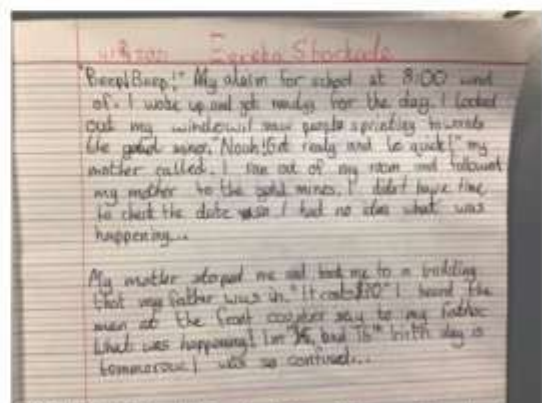 Eureka Stockade
"Beep! Beep!" My alarm for school at 8:00 went
of. I woke up and got ready for the day. I looked
out my window. I saw people sprinting towards
the gold mines. "Noah! Get ready and be quick!" my
mother called. I ran out of my room and followed
my mother to the gold mines. I didn't have time
to check the date so I had no idea what was
happening...
My mother stoped me and took me to a building
that my father was in. "It costs $20" I heard the
man at the front counter say to my father.
What was happening! I'm and 16th birth day is
tommorow! I was so confused...